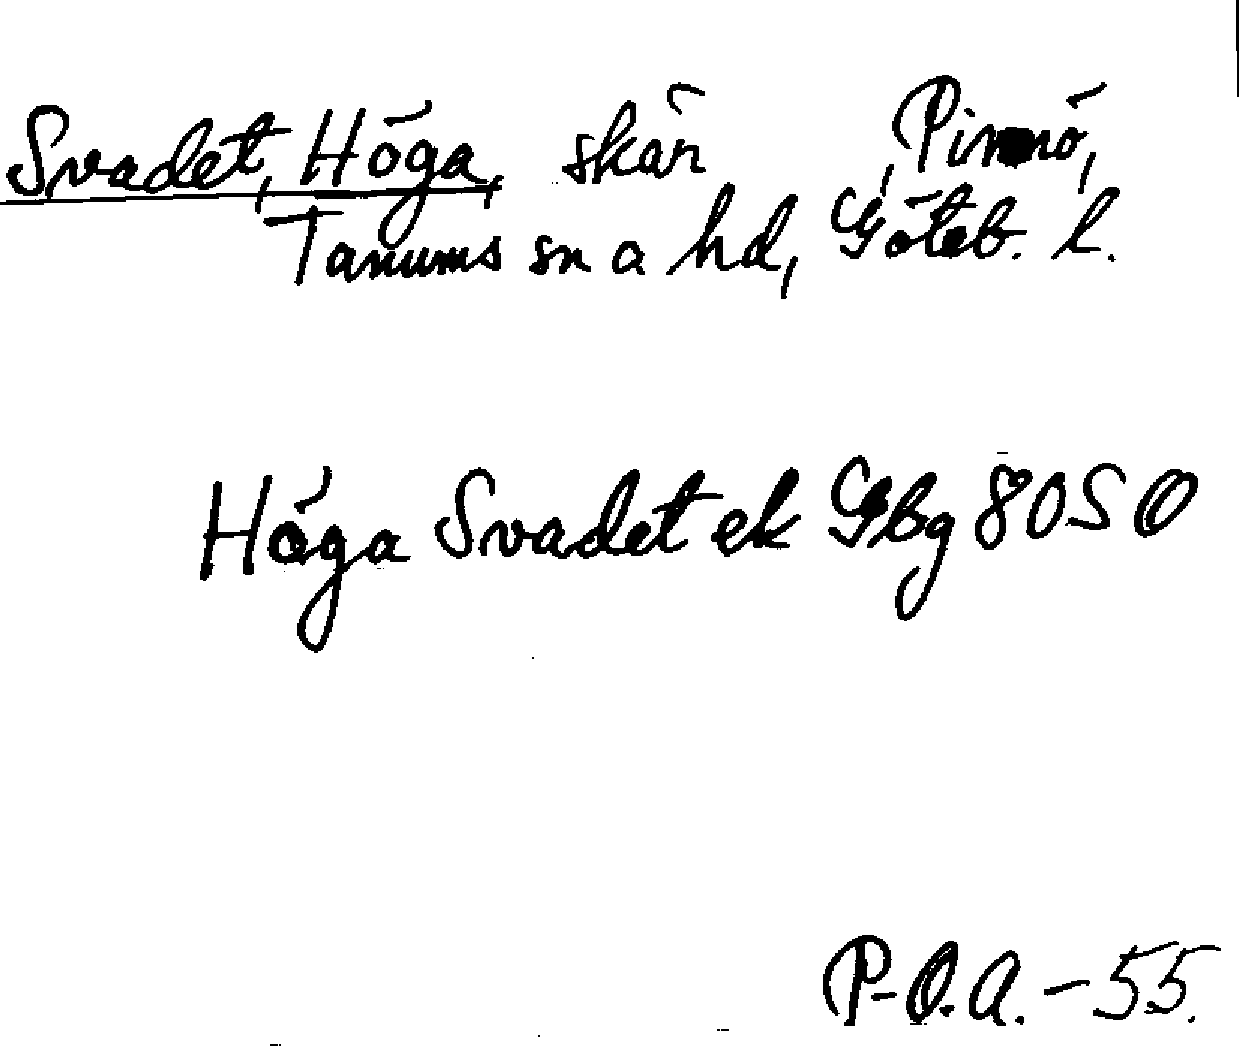 Svadet, Höga, skär, Pinnö,
Tanums sn o hd, Göteb. l.
Höga Svadet ek Gbg 8050
P-O.A. - 55.